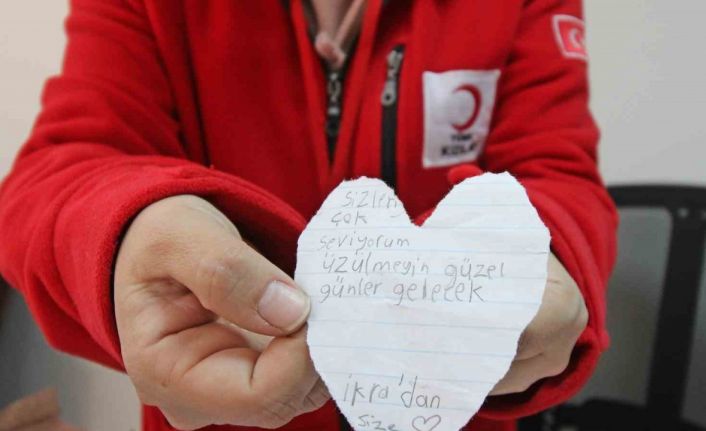 TÜRK
KIZILAY
sizleri
çok
seviyorum
üzülmeyin güzel
günler gelecek
ikra'dan
size